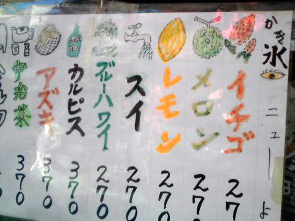 かき氷
ニュー
イチゴ 270
メロン 270
レモン 270
スイ 270
ブルーハワイ 270
カルピス 370
アズキ 370
宇治茶 370